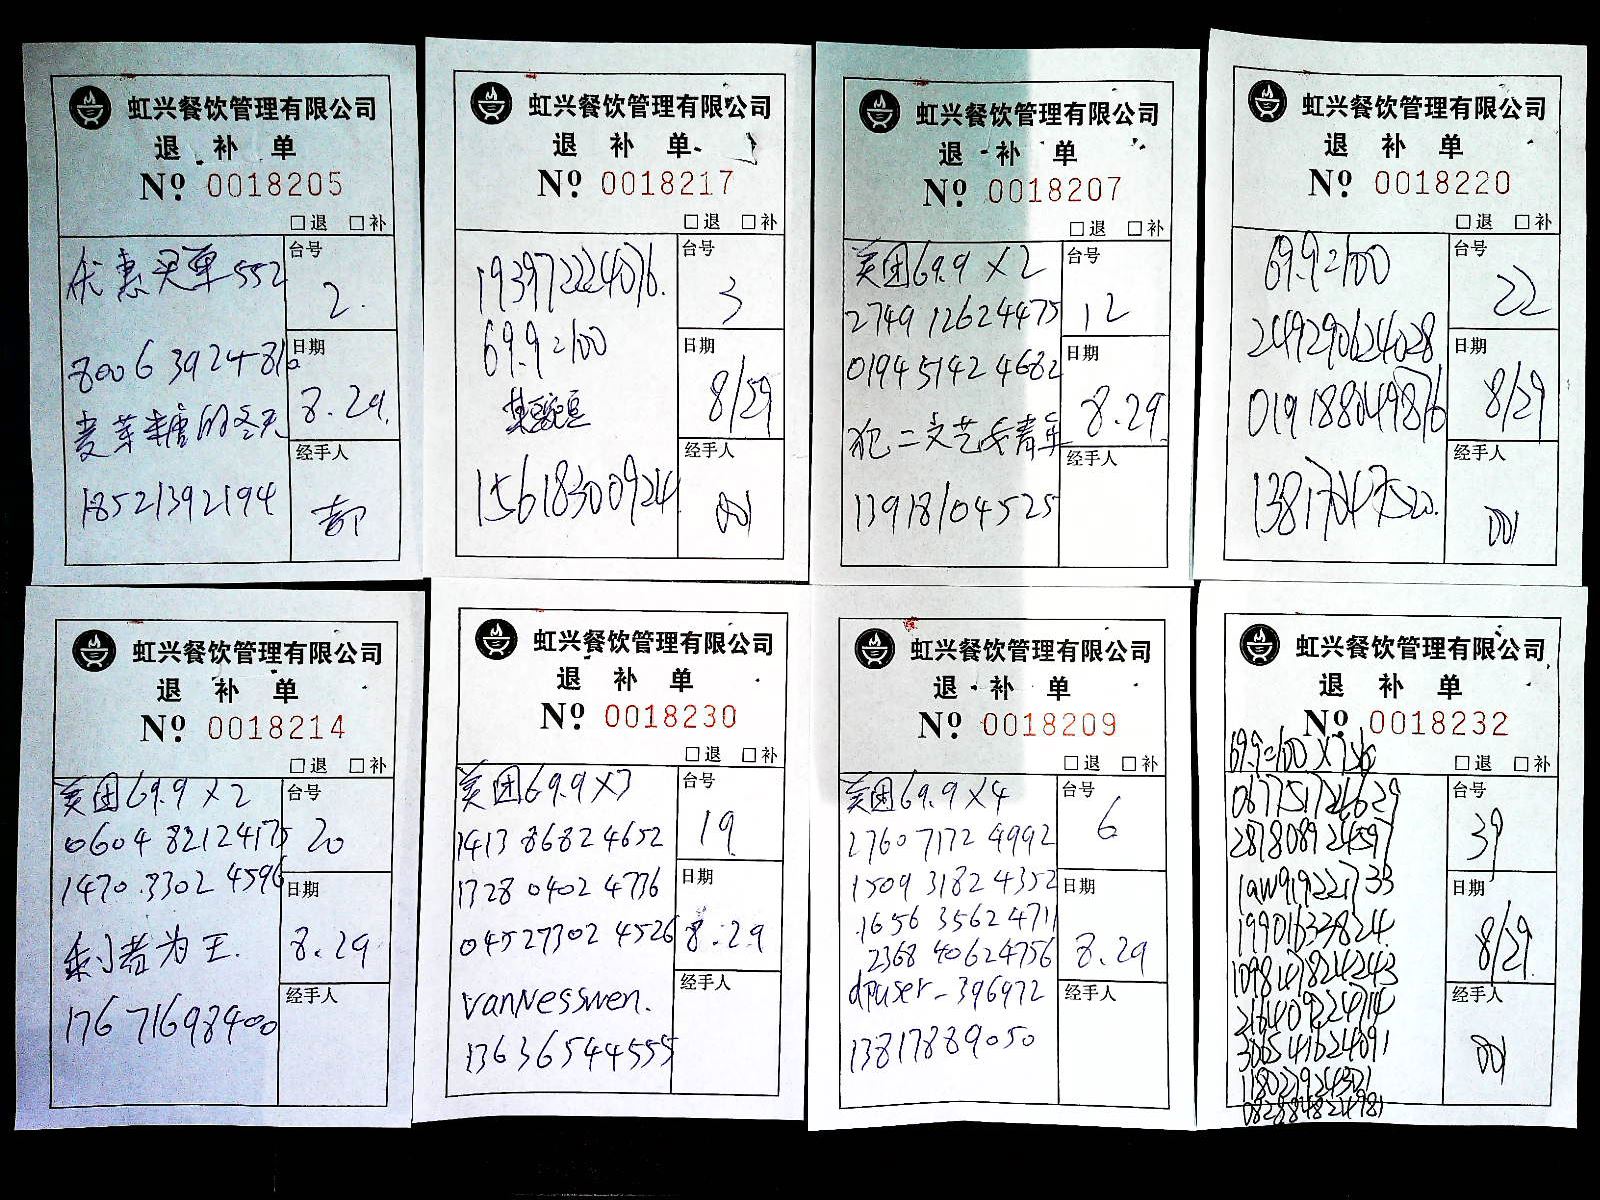 虹兴餐饮管理有限公司
退补单
No. 0018205
□退 □补
优惠买单552
台号
2.
8006 3924 816
日期
8.29.
麦芽糖的冬天
经手人
18521392194
虹兴餐饮管理有限公司
退补单
No. 0018217
□退 □补
台号
3
69.9=100
日期
8/29
经手人
15618300924
001
虹兴餐饮管理有限公司
退补单
No. 0018207
□退 □补
美团69.9×2
台号
12
2749 12624475
01945142 4682
日期
8.29.
犯二文艺女青年
经手人
13918104525
虹兴餐饮管理有限公司
退补单
No. 0018220
□退 □补
69.9=100
台号
22
249290624028
日期
8/29
019188049876
经手人
13817047520.
001
虹兴餐饮管理有限公司
退补单
No. 0018214
□退 □补
美团69.9×2
台号
20
0604 82124175
1470 3302 4596
日期
8.29
剩者为王.
经手人
176 71698400
虹兴餐饮管理有限公司
退补单
No. 0018230
□退 □补
美团69.9×3
台号
19
1413 8682 4652
1728 0402 4736
日期
8.29
04527302 4526
经手人
vanNesswen.
13636544555
虹兴餐饮管理有限公司
退补单
No. 0018209
□退 □补
美团69.9×4
台号
6
2760 7172 4992
1509 3182 4352
日期
8.29
1656 3562 4711
2368 40624756
dpuser-396972
经手人
13817889050
虹兴餐饮管理有限公司
退补单
No. 0018232
□退 □补
69.9=100
台号
39
067751724629
287808924597
日期
8/29
19901633824
1098147824243
216409224714
经手人
306541624091
001
118022924321
082884824981